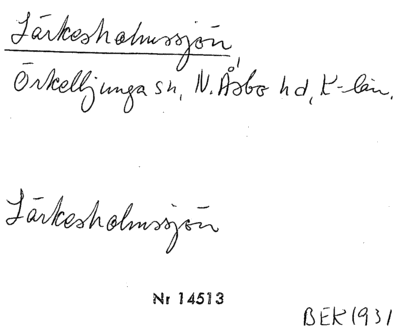 Lärkesholmssjön
Örkelljunga sn, N. Åsbo hd, K-län.
Lärkesholmssjön
Nr 14513
BEK 1931